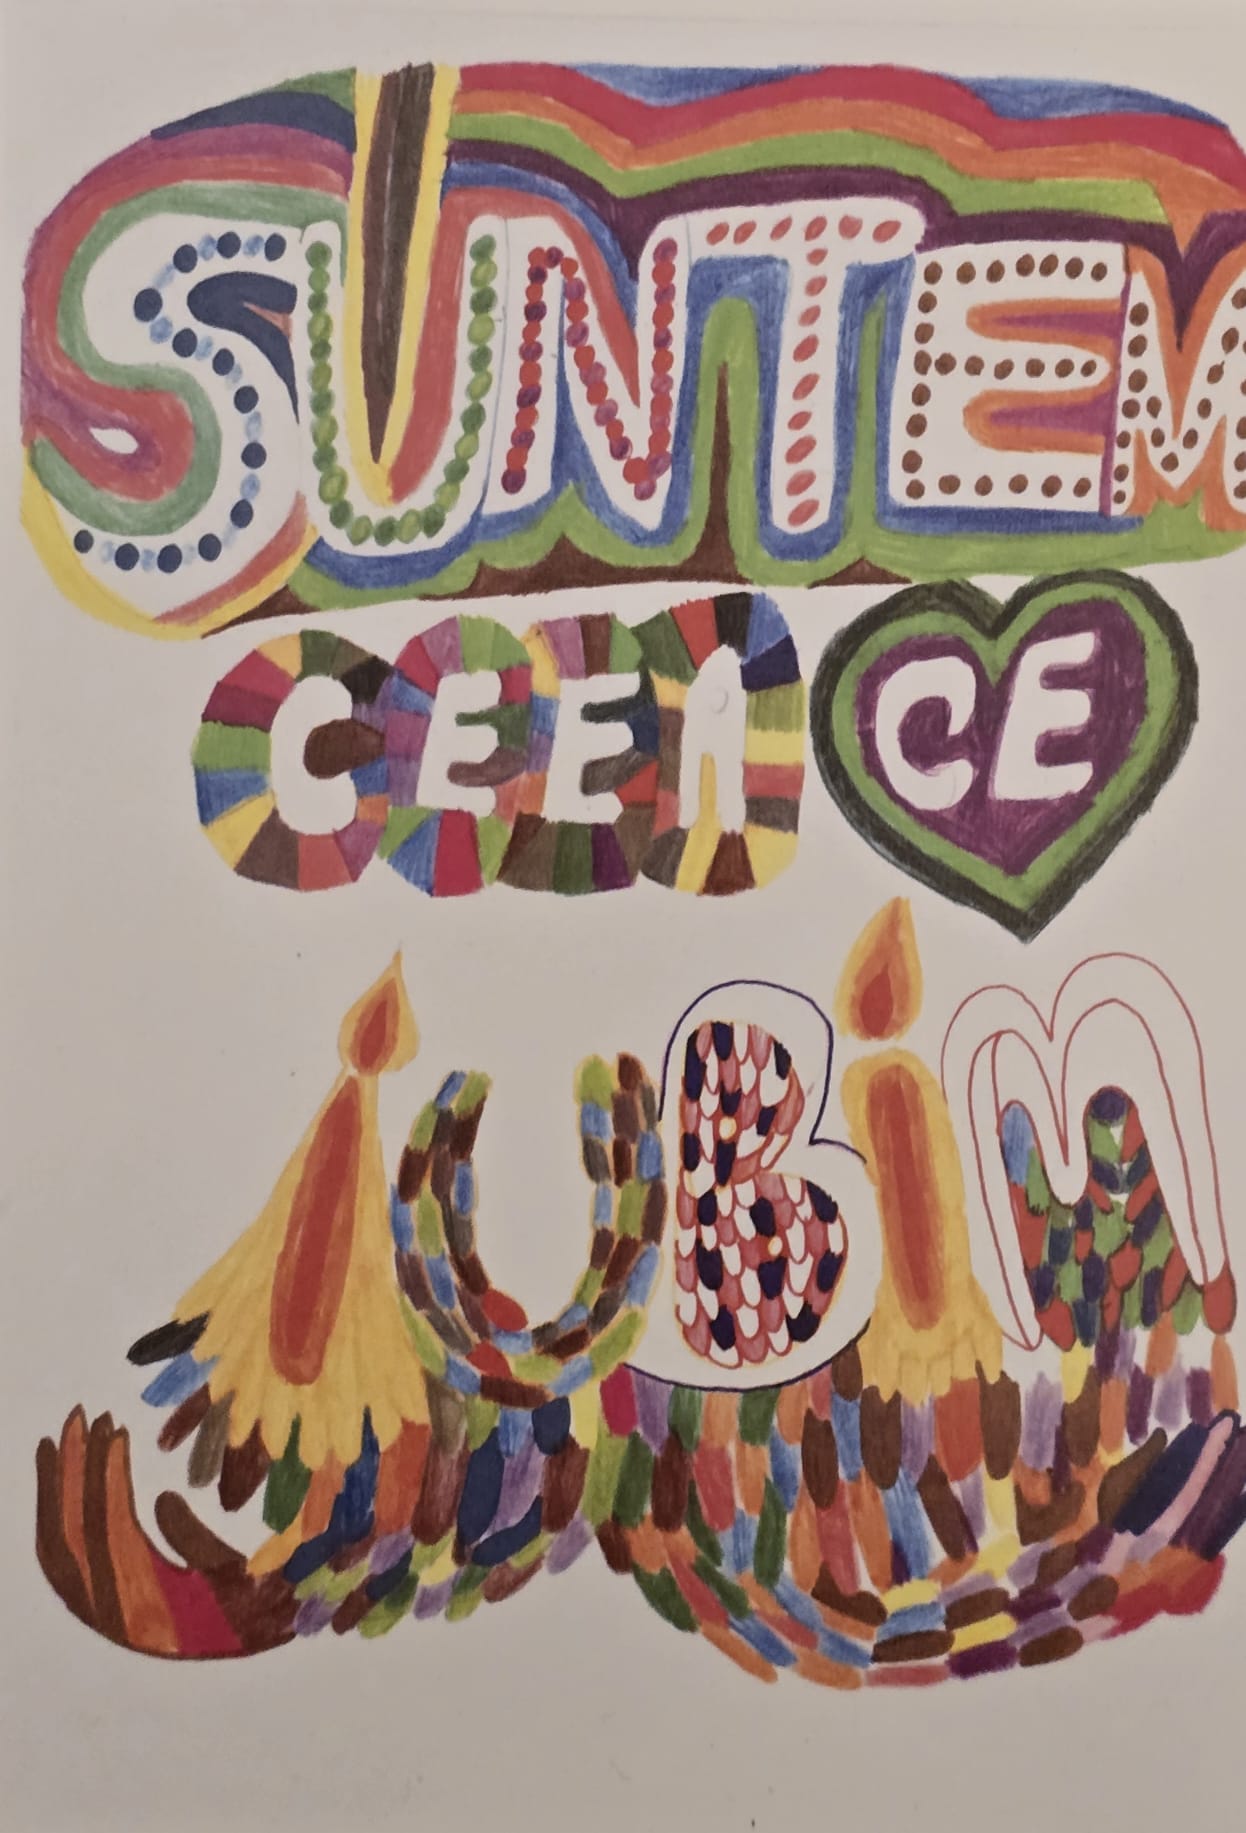 SUNTEM
CEEA CE
IUBIM